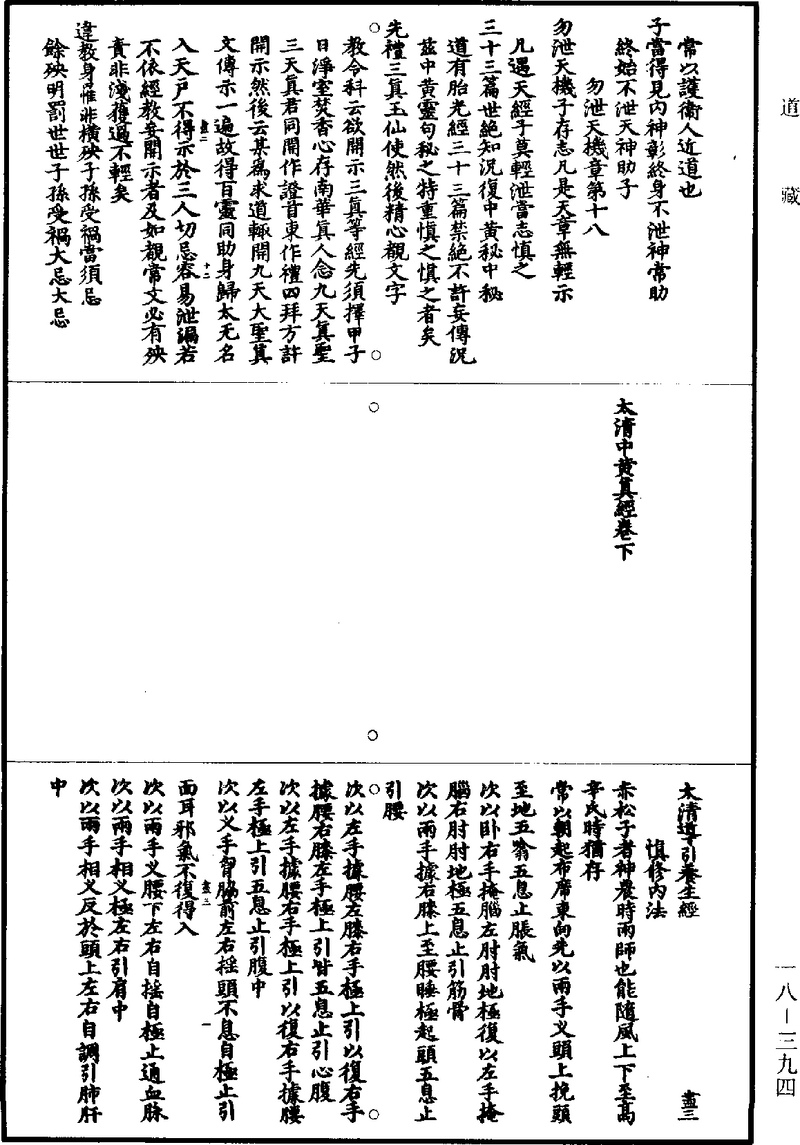 道藏
常以護衛人近道也
子當得見內神彰終身不泄神常助
終始不泄天神助子
勿泄天機章第十八
勿泄天機子存志凡是天章無輕示
凡遇天經子莫輕泄當志慎之
三十三篇世絕知況復中黃秘中秘
道有胎光經三十三篇禁絕不許妄傳況
茲中黃靈句秘之特重慎之慎之者矣
先禮三真玉仙使然後精心觀文字
教令科云欲開示三真等經先須擇甲子
日淨室焚香心存南華真人念九天真聖
三天真君同開作證首東作禮四拜方許
開示然後云某為求道輒開九天大聖真
文傳示一遍故得百靈同助身歸太无名
盡二
十二
入天戶不得示於三人切忌容易泄漏若
不依經教妄開示者及如觀常文必有殃
責非淺獲過不輕矣
違教身罹非橫殃子孫受禍當須忌
餘殃明罰世世子孫受禍大忌大忌
太清中黃真經卷下
太清導引養生經
盡三
慎修內法
赤松子者神農時雨師也能隨風上下至高
辛氏時猶存
常以朝起布席東向先以兩手叉頭上挽頭
至地五噏五息止脹氣
次以卧右手掩腦左肘肘地極復以左手掩
腦右肘肘地極五息止引筋骨
次以兩手據右膝上至腰睡極起頭五息止
引腰
次以左手據腰左膝右手極上引以復右手
據腰右膝左手極上引皆五息止引心腹
次以左手據腰右手極上引以復右手據腰
左手極上引五息止引腹中
次以叉手胷脇前左右摇頭不息自極止引
盡三
一
面耳邪氣不復得入
次以兩手叉腰下左右自摇自極止通血脉
次以兩手相叉極左右引肩中
次以兩手相叉反於頭上左右自調引肺肝
中
一八－三九四